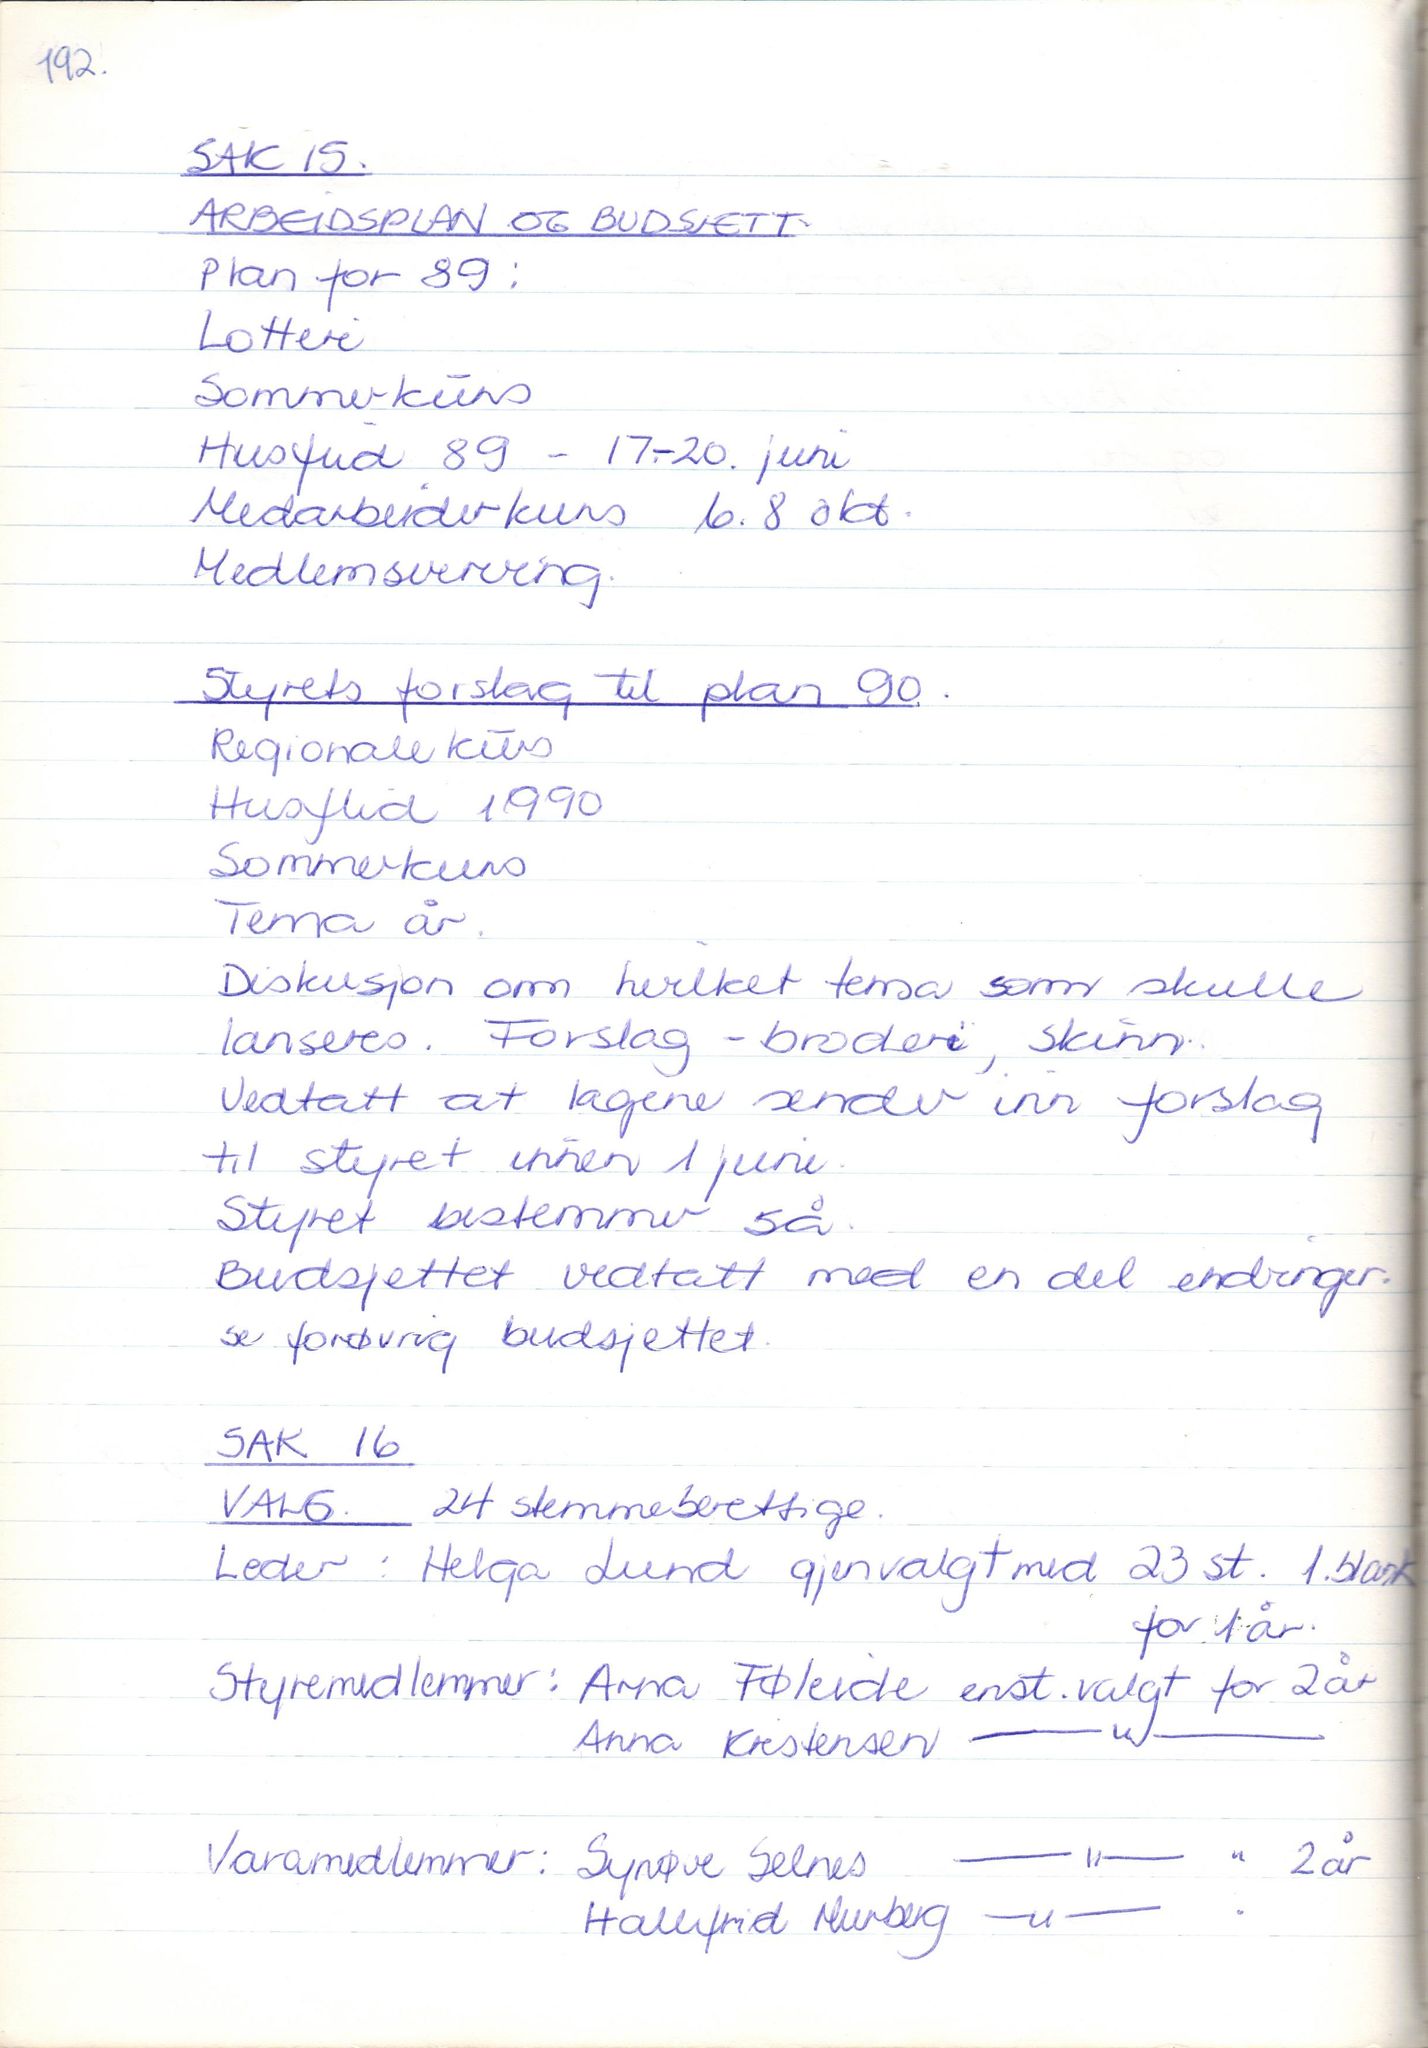 192.
SAK 15.
ARBEIDSPLAN OG BUDSJETT.
Plan for 89:
Lotteri
Sommerkurs
Husflid 89 - 17-20. juni
Medarbeiderkurs 6.8 okt.
Medlemsverving.
Styrets forslag til plan 90.
Regionale kurs
Husflid 1990
Sommerkurs
Tema år.
Diskusjon om hvilket tema som skulle
lanseres. Forslag - broderi, skinn.
Vedtatt at lagene sender inn forslag
til styret innen 1 juni.
Styret bestemmer så.
Budsjettet vedtatt med en del endringer.
se forøvrig budsjettet.
SAK 16
VALG. 24 stemmeberettige.
Leder: Helga Lund gjenvalgt med 23 st. 1. blank
for 1 år.
Styremedlemmer: Arna Føleide enst. valgt for 2 år
Anna Kristensen —— " ——
Varamedlemmer: Synøve Selnes —— " —— " 2 år
Hallfrid Murberg — " ——